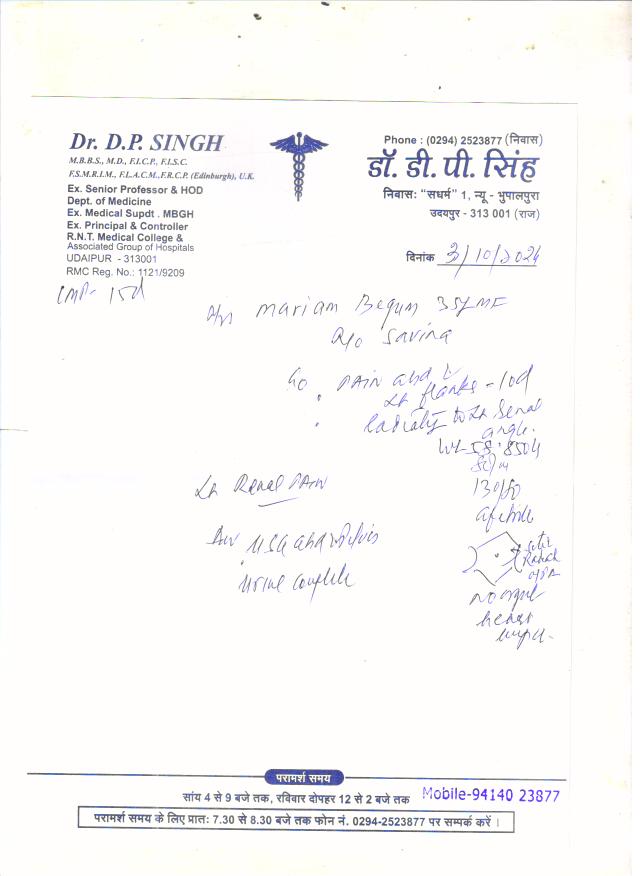 Dr. D.P. SINGH
M.B.B.S., M.D., F.I.C.P., F.I.S.C.
F.S.M.R.I.M., F.L.A.C.M.,F.R.C.P. (Edinburgh), U.K.
Ex. Senior Professor & HOD
Dept. of Medicine
Ex. Medical Supdt . MBGH
Ex. Principal & Controller
R.N.T. Medical College &
Associated Group of Hospitals
UDAIPUR - 313001
RMC Reg. No.: 1121/9209
Phone : (0294) 2523877 (निवास)
डॉ. डी. पी. सिंह
निवासः "सधर्म" 1, न्यू - भुपालपुरा
उदयपुर - 313 001 (राज)
दिनांक 3/10/2024
15d
Mariam Begum 35y
R/o Savina
PAIN abd
Lt flanks - 10d
to Lt renal
angle.
Wt - 58.850
130/80
afebrile
Lt Renal PAIN
Adv USG abd
Urine complete
परामर्श समय
सांय 4 से 9 बजे तक, रविवार दोपहर 12 से 2 बजे तक Mobile-94140 23877
परामर्श समय के लिए प्रातः 7.30 से 8.30 बजे तक फोन नं. 0294-2523877 पर सम्पर्क करें ।